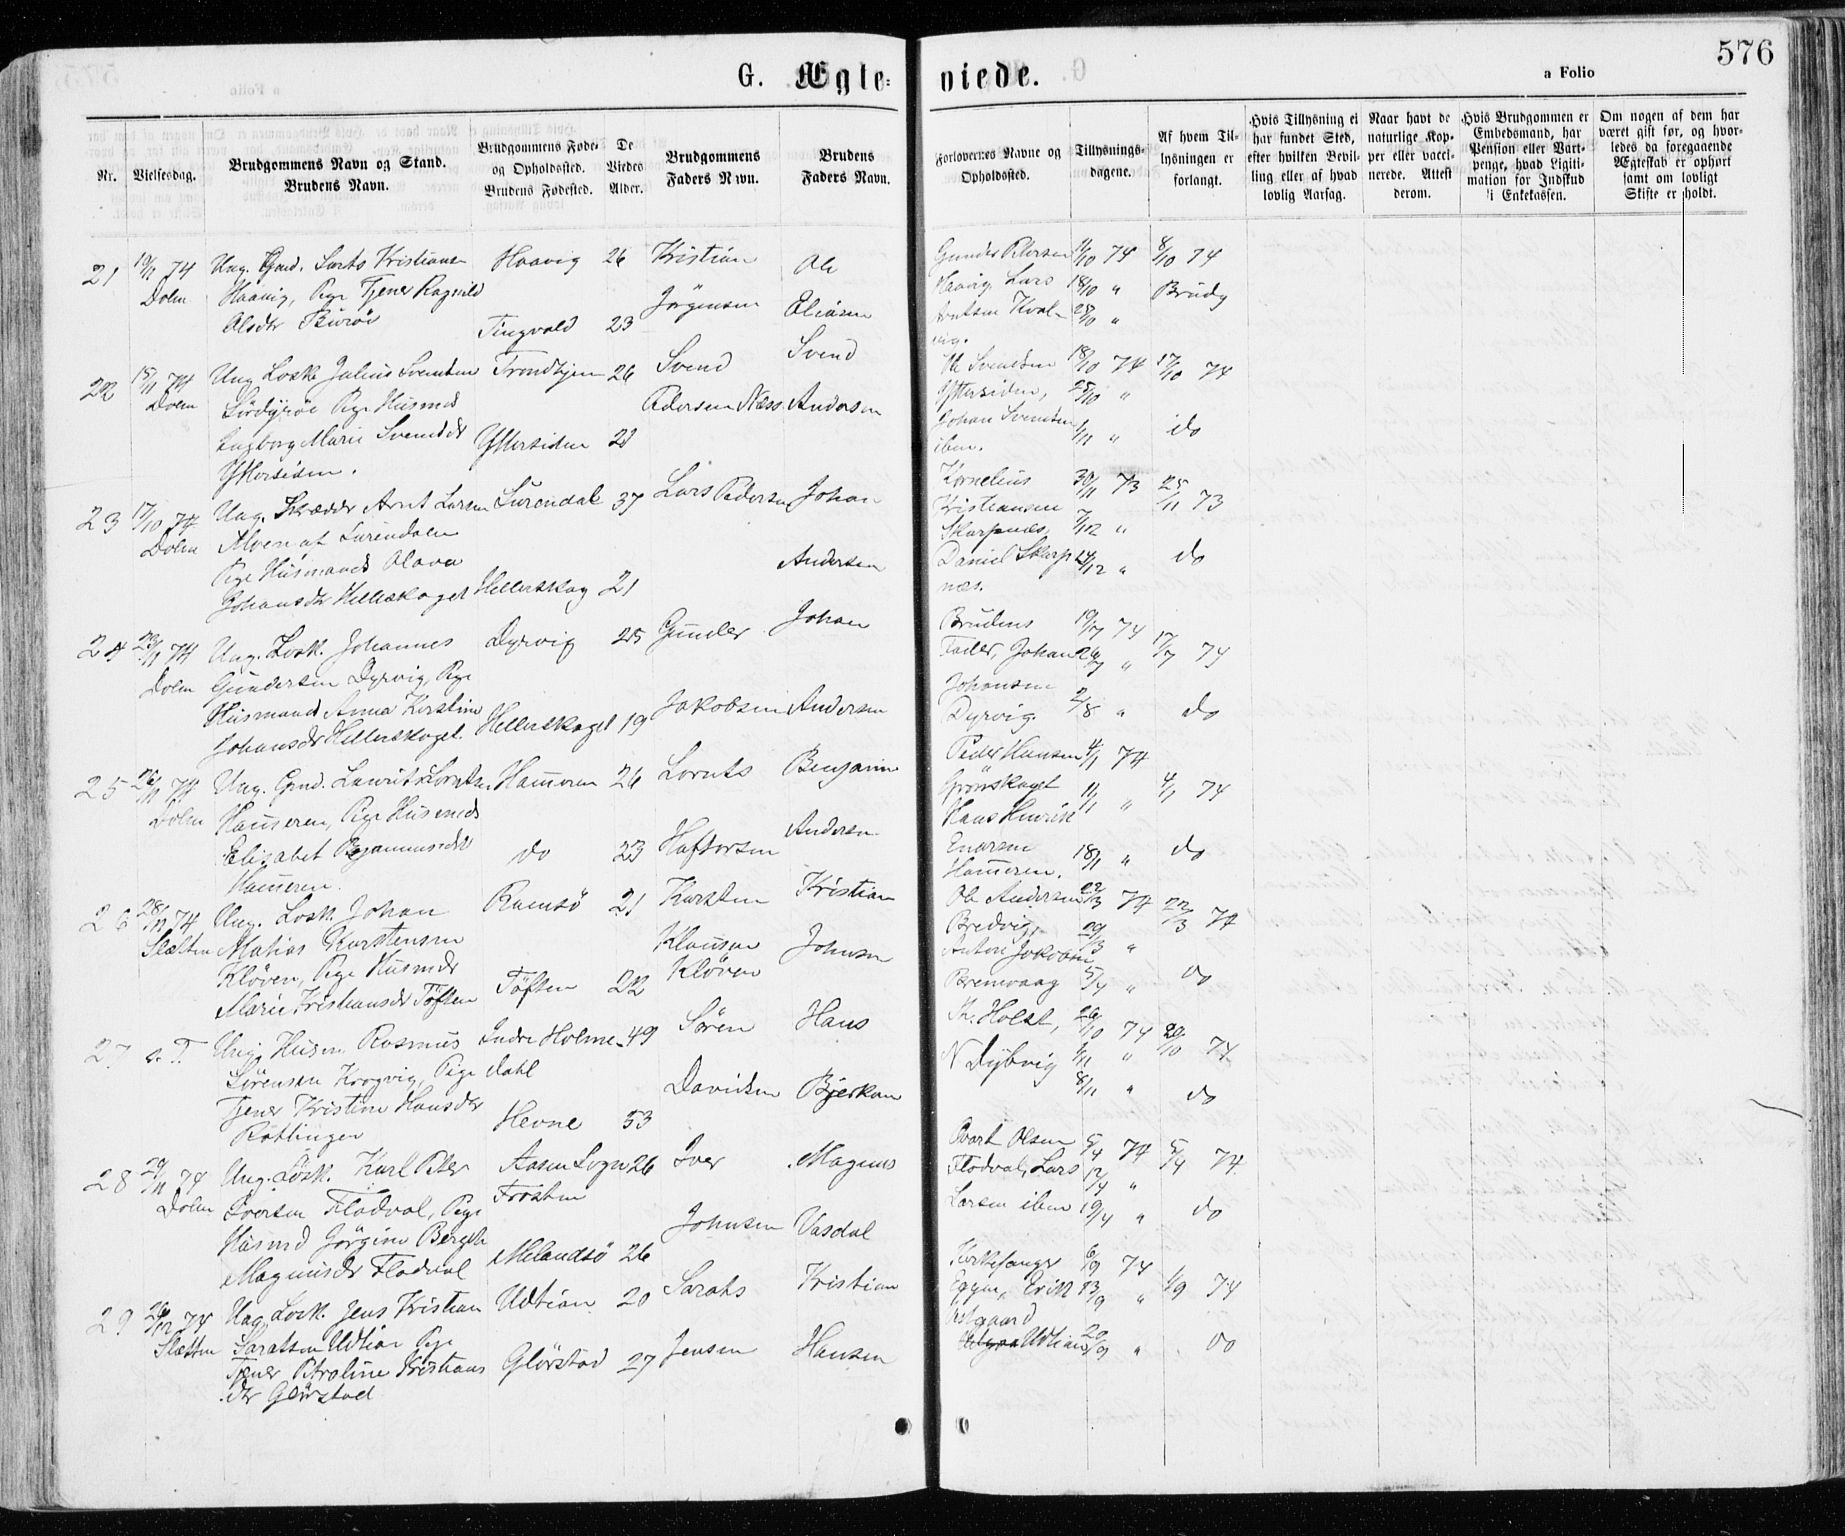 576
G. Ægte-
viede.
a Folio
Nr.
Vielsesdag.
Brudgommens Navn og Stand.
Brudens Navn.
Brudgommens Føde-
og Opholdssted.
Brudens Fødested.
De
Viedes
Alder.
Brudgommens
Faders Navn.
Brudens
Faders Navn.
Forlovernes Navne og
Opholdssted.
Tillysnings-
dagene.
Af hvem Til-
lysningen er
forlangt.
Hvis Tillysning ei
har fundet Sted,
efter hvilken Bevil-
ling eller af hvad
lovlig Aarsag.
Naar havt de
naturlige Kop-
per eller vacci-
nerede. Attest
derom.
Hvis Brudgommen er
Embedsmand, har
Pension eller Vart-
penge, hvad Ligiti-
mation for Indskud
i Enkekassen.
Om nogen af dem har
været gift før, og hvor-
ledes da foregaaende
Ægteskab er ophørt
samt om lovligt
Skifte er holdt.
21 19/11 74 Ung. Gmd. Kristiansen Haavig 26 Kristian Ole Gunder Petersen 11/10 74 8/10 74
Dolm Haavig, Pige Tjener Ragnild Jørgensen Eliasen Haavig, Lars 18/10 " Brudg
Olsdr Burøe Tingvold 23 Arntsen Kval- 25/10 "
vig.
22 15/11 74 Ung. Losk. Julius Svendsen Trondhjem 26 Svend Svend Ole Svendsen 18/10 74 17/10 74
Dolm Sørdyrøe Pige Husmds Pedersen Næss Andersen Yttersiden, 25/10 "
Ingborg Marie Svendsdr Yttersiden 21 Johan Svendsen 1/11 " do
Yttersiden. iben.
23 17/10 74 Ung. Skrædder Arnt Larsen Surendal 37 Lars Pedersen Johan Kornelius 30/11 73 25/11 73
Dolm Moen af Surendalen Kristiansen
Pige Husmands Olava Andersen Skarpnes, 7/12 "
Johansdr Helleskoget Hellerskog 21 Daniel Skarp 14/12 " do
nes.
24 23/11 74 Ung. Losk. Johannes Dyrvig 25 Gunder Johan Brudens 19/7 74 17/7 74
Dolm Gundersen Dyrvig, Pige Fader, Johan 26/7 "
Husmands Anna Kirstine Jakobsen Andersen Johansen 2/8 " do
Johansdr Hellerskoget. Hellerskoget 19 Dyrvig.
25 26/11 74 Ung. Gmd. Laurits Lorntsen Hammeren 26 Lornts Benjamin Peder Hansen 4/1 74
Dolm Hammeren, Pige Husmds Grønskaget 11/1 " 4/1 74
Elisabet Benjaminsdr do 23 Haftorsen Andersen Hans Henrik
Hammeren. Enarsen 18/1 " do
Hammeren.
26 28/11 74 Ung. Losk. Johan Ramsö 21 Karsten Kristian Ole Andersen 22/3 74 22/3 74
Sletten Matias Karstensen Klausen Johnsen Bredvig, 29/3 "
Kløven, Pige Husmds Kløven Anton Jakobsen
Marie Kristiansdr Töften Töften 22 Bremvaag 5/4 " do
27 s. T. Ung. Husm. Rasmus Indre Holme- 49 Sören Hans Th. Holst, 26/10 74 20/10 74
Sörensen Krogvig, Pige dahl N Dybvig 1/11 "
Tjener Kristine Hansdr Davidsen Bjerkan 8/11 " do
Röttinger Hevne 53
28 29/11 74 Ung. Losk. Karl Peter Aasen Sogn 26 Iver Magnus Evart Olsen 5/4 74 5/4 74
Dolm Iversen Flodval, Pige Frosten Flodval, Lars 12/4 "
Husmd Jørgine Bergith Johnsen Vasdal Larsen iben 19/4 " do
Magnusdr Flodval Melandsö 26
29 26/12 74 Ung. Losk. Jens Kristian Udtian 20 Sarats Kristian Kirkesanger 6/9 74
Sletten Saratsen Udtian Pige Eggen, Erik 13/9 " 1/9 74
Tjener Petroline Kristians Glørstad 27 Jensen Hansen Vestgaard
dr Glørstad Udtian 20/9 " do